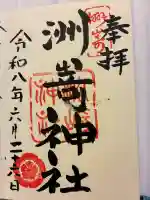 奉拝
洲崎神社
令和八年六月二十六日